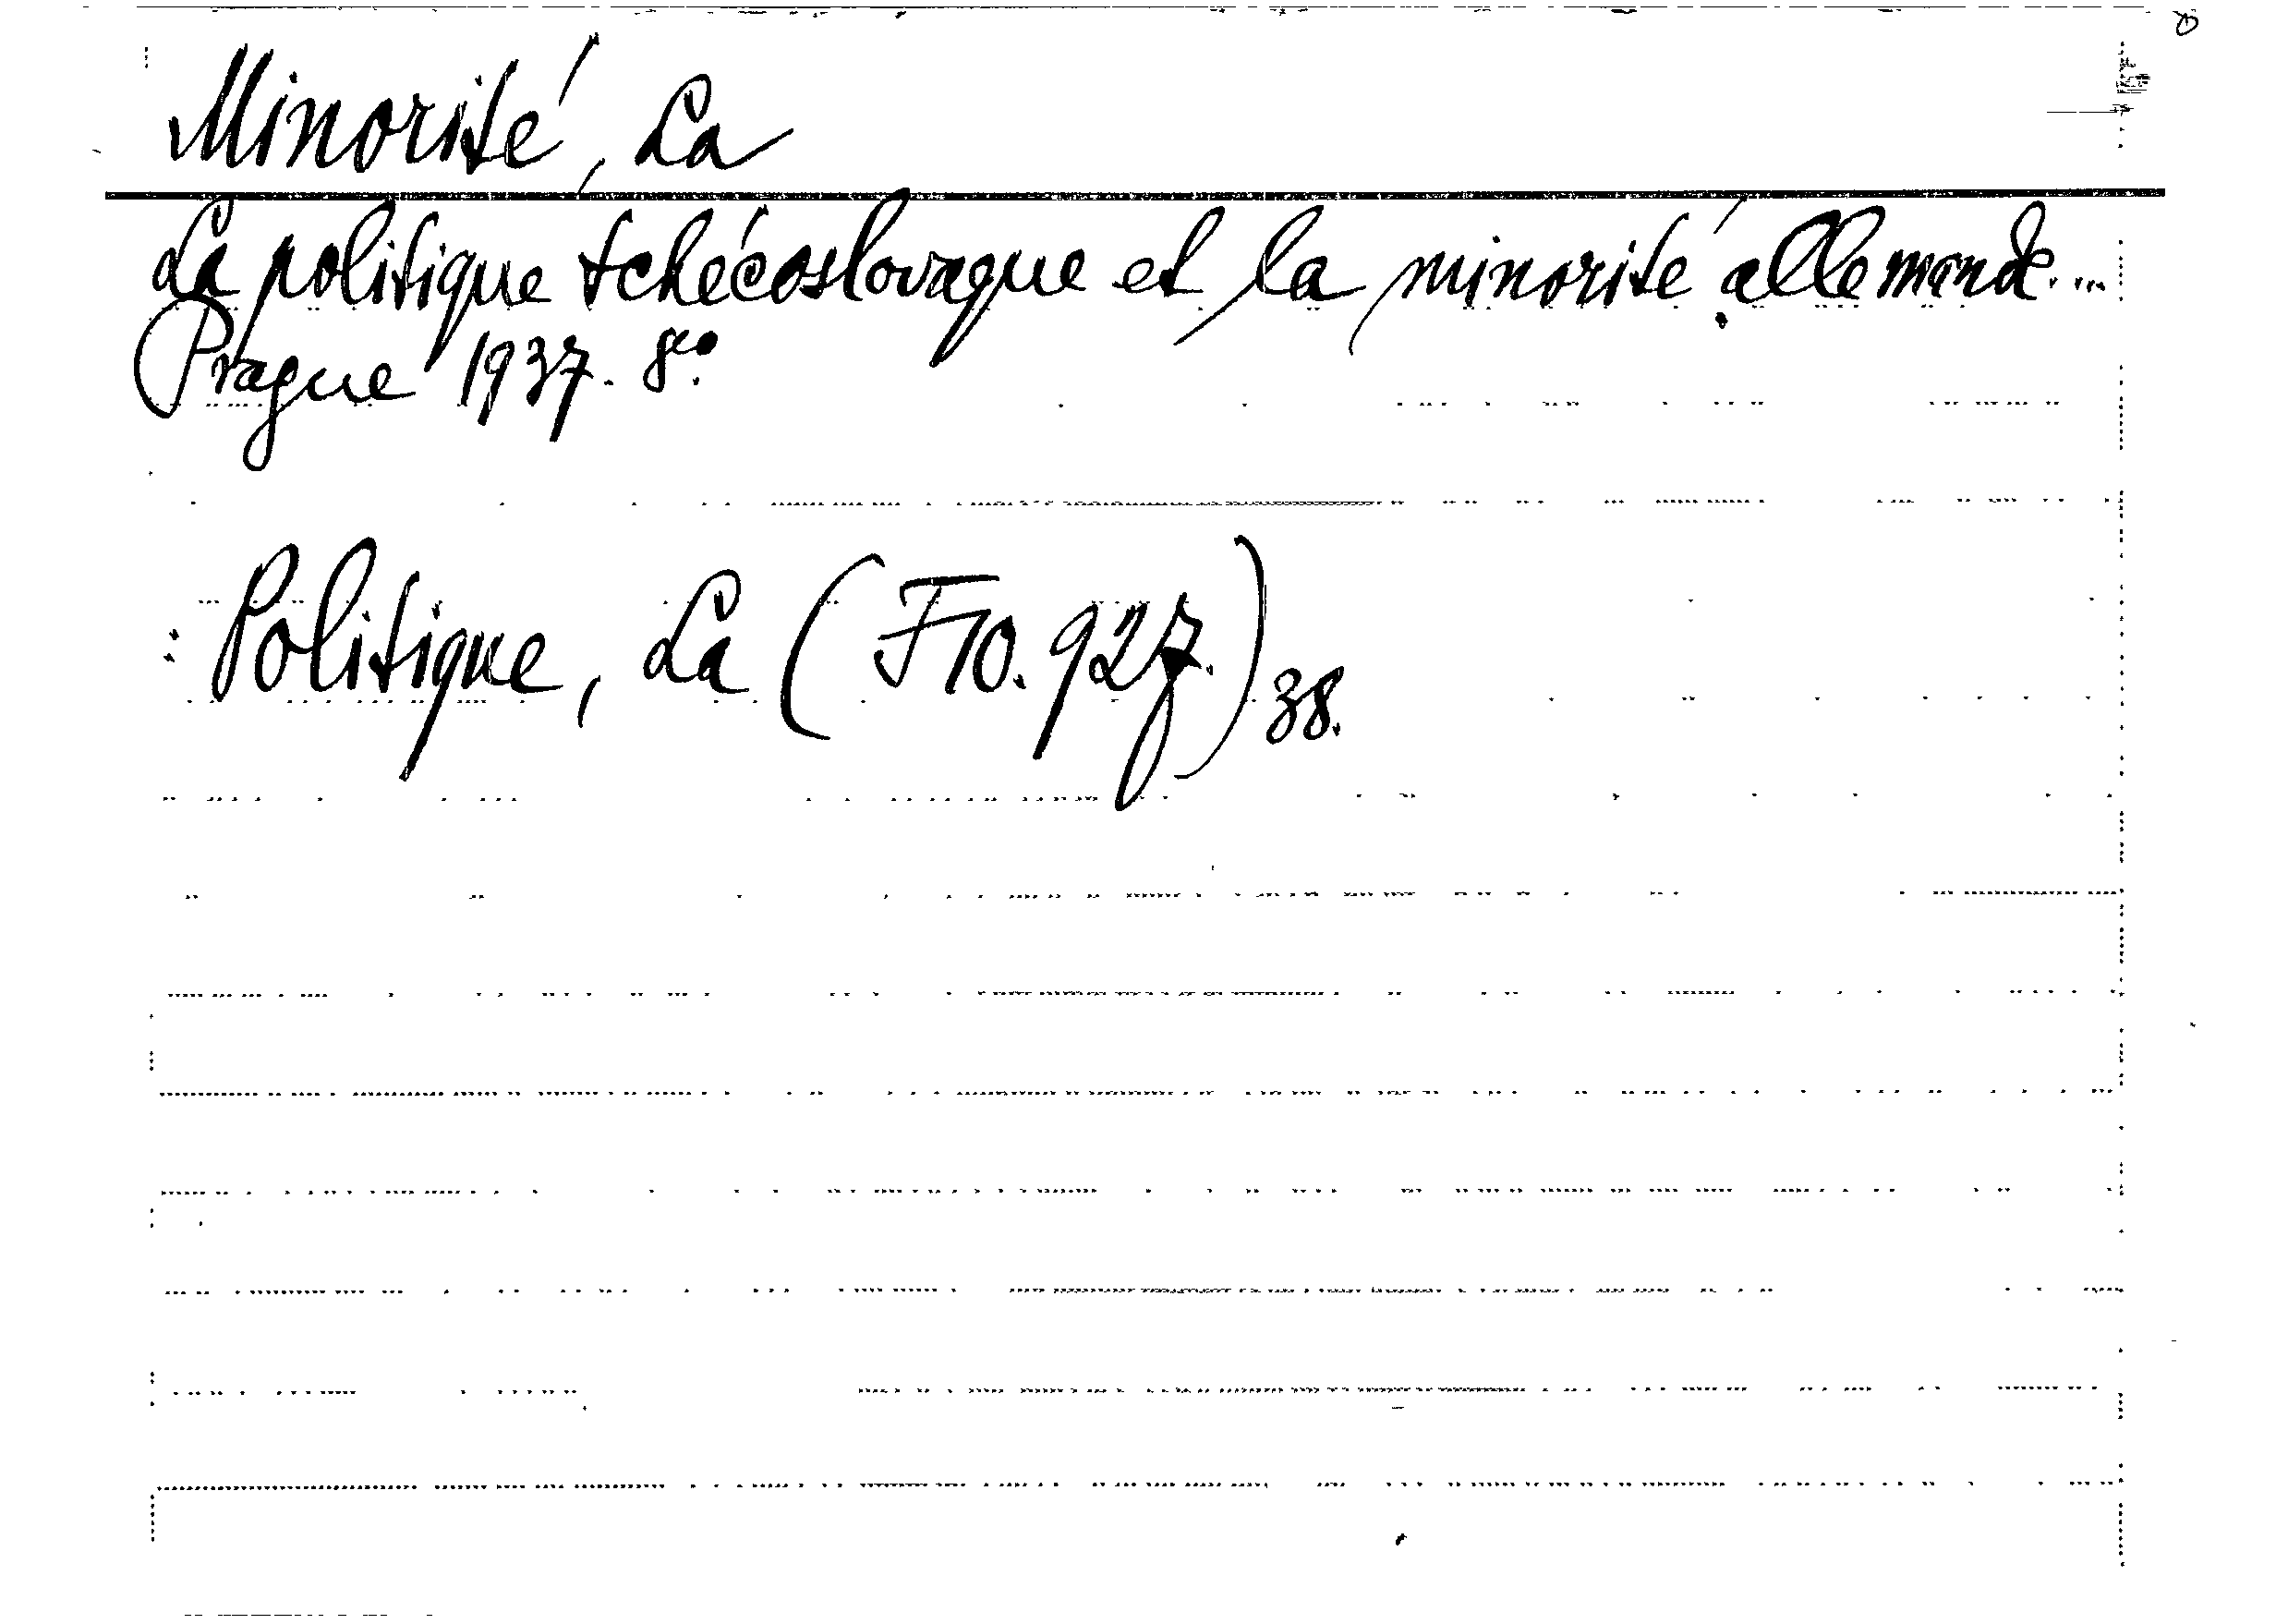 Minorité, La
La politique tchécoslovaque et la minorité allemande...
Prague 1937. 8co.
: Politique, La (F10.927.) 38.